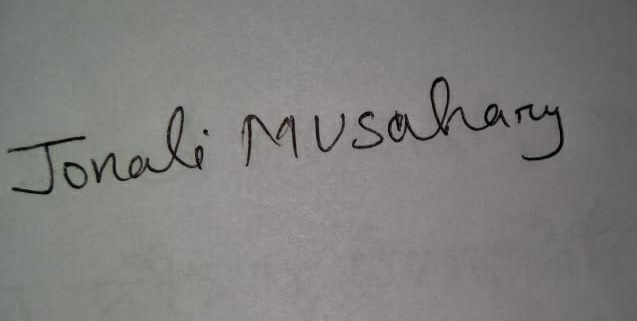 Jonali Musahary